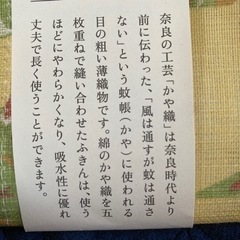 奈良の工芸「かや織」は奈良時代より
前に伝わった、「風は通すが蚊は通さ
ない」という蚊帳（かや）に使われる
目の粗い薄織物です。綿のかや織を五
枚重ねで縫い合わせたふきんは、使う
ほどにやわらかくなり、吸水性に優れ
丈夫で長く使うことができます。